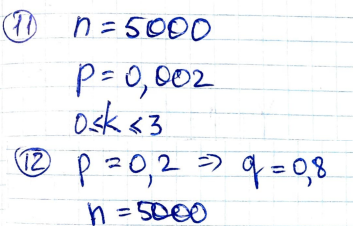 ⑪ n = 5000
p = 0,002
0≤k≤3
⑫ p = 0,2 ⇒ q = 0,8
n = 5000